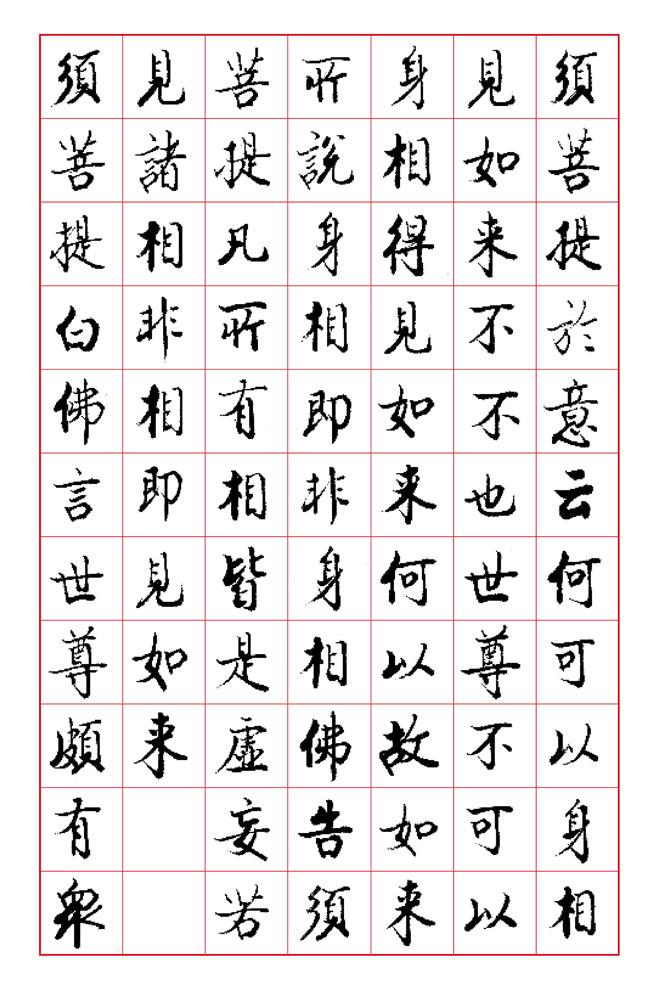 須菩提於意云何可以身相
見如来不不也世尊不可以
身相得見如来何以故如来
所說身相即非身相佛告須
菩提凡所有相皆是虛妄若
見諸相非相即見如来
須菩提白佛言世尊頗有衆